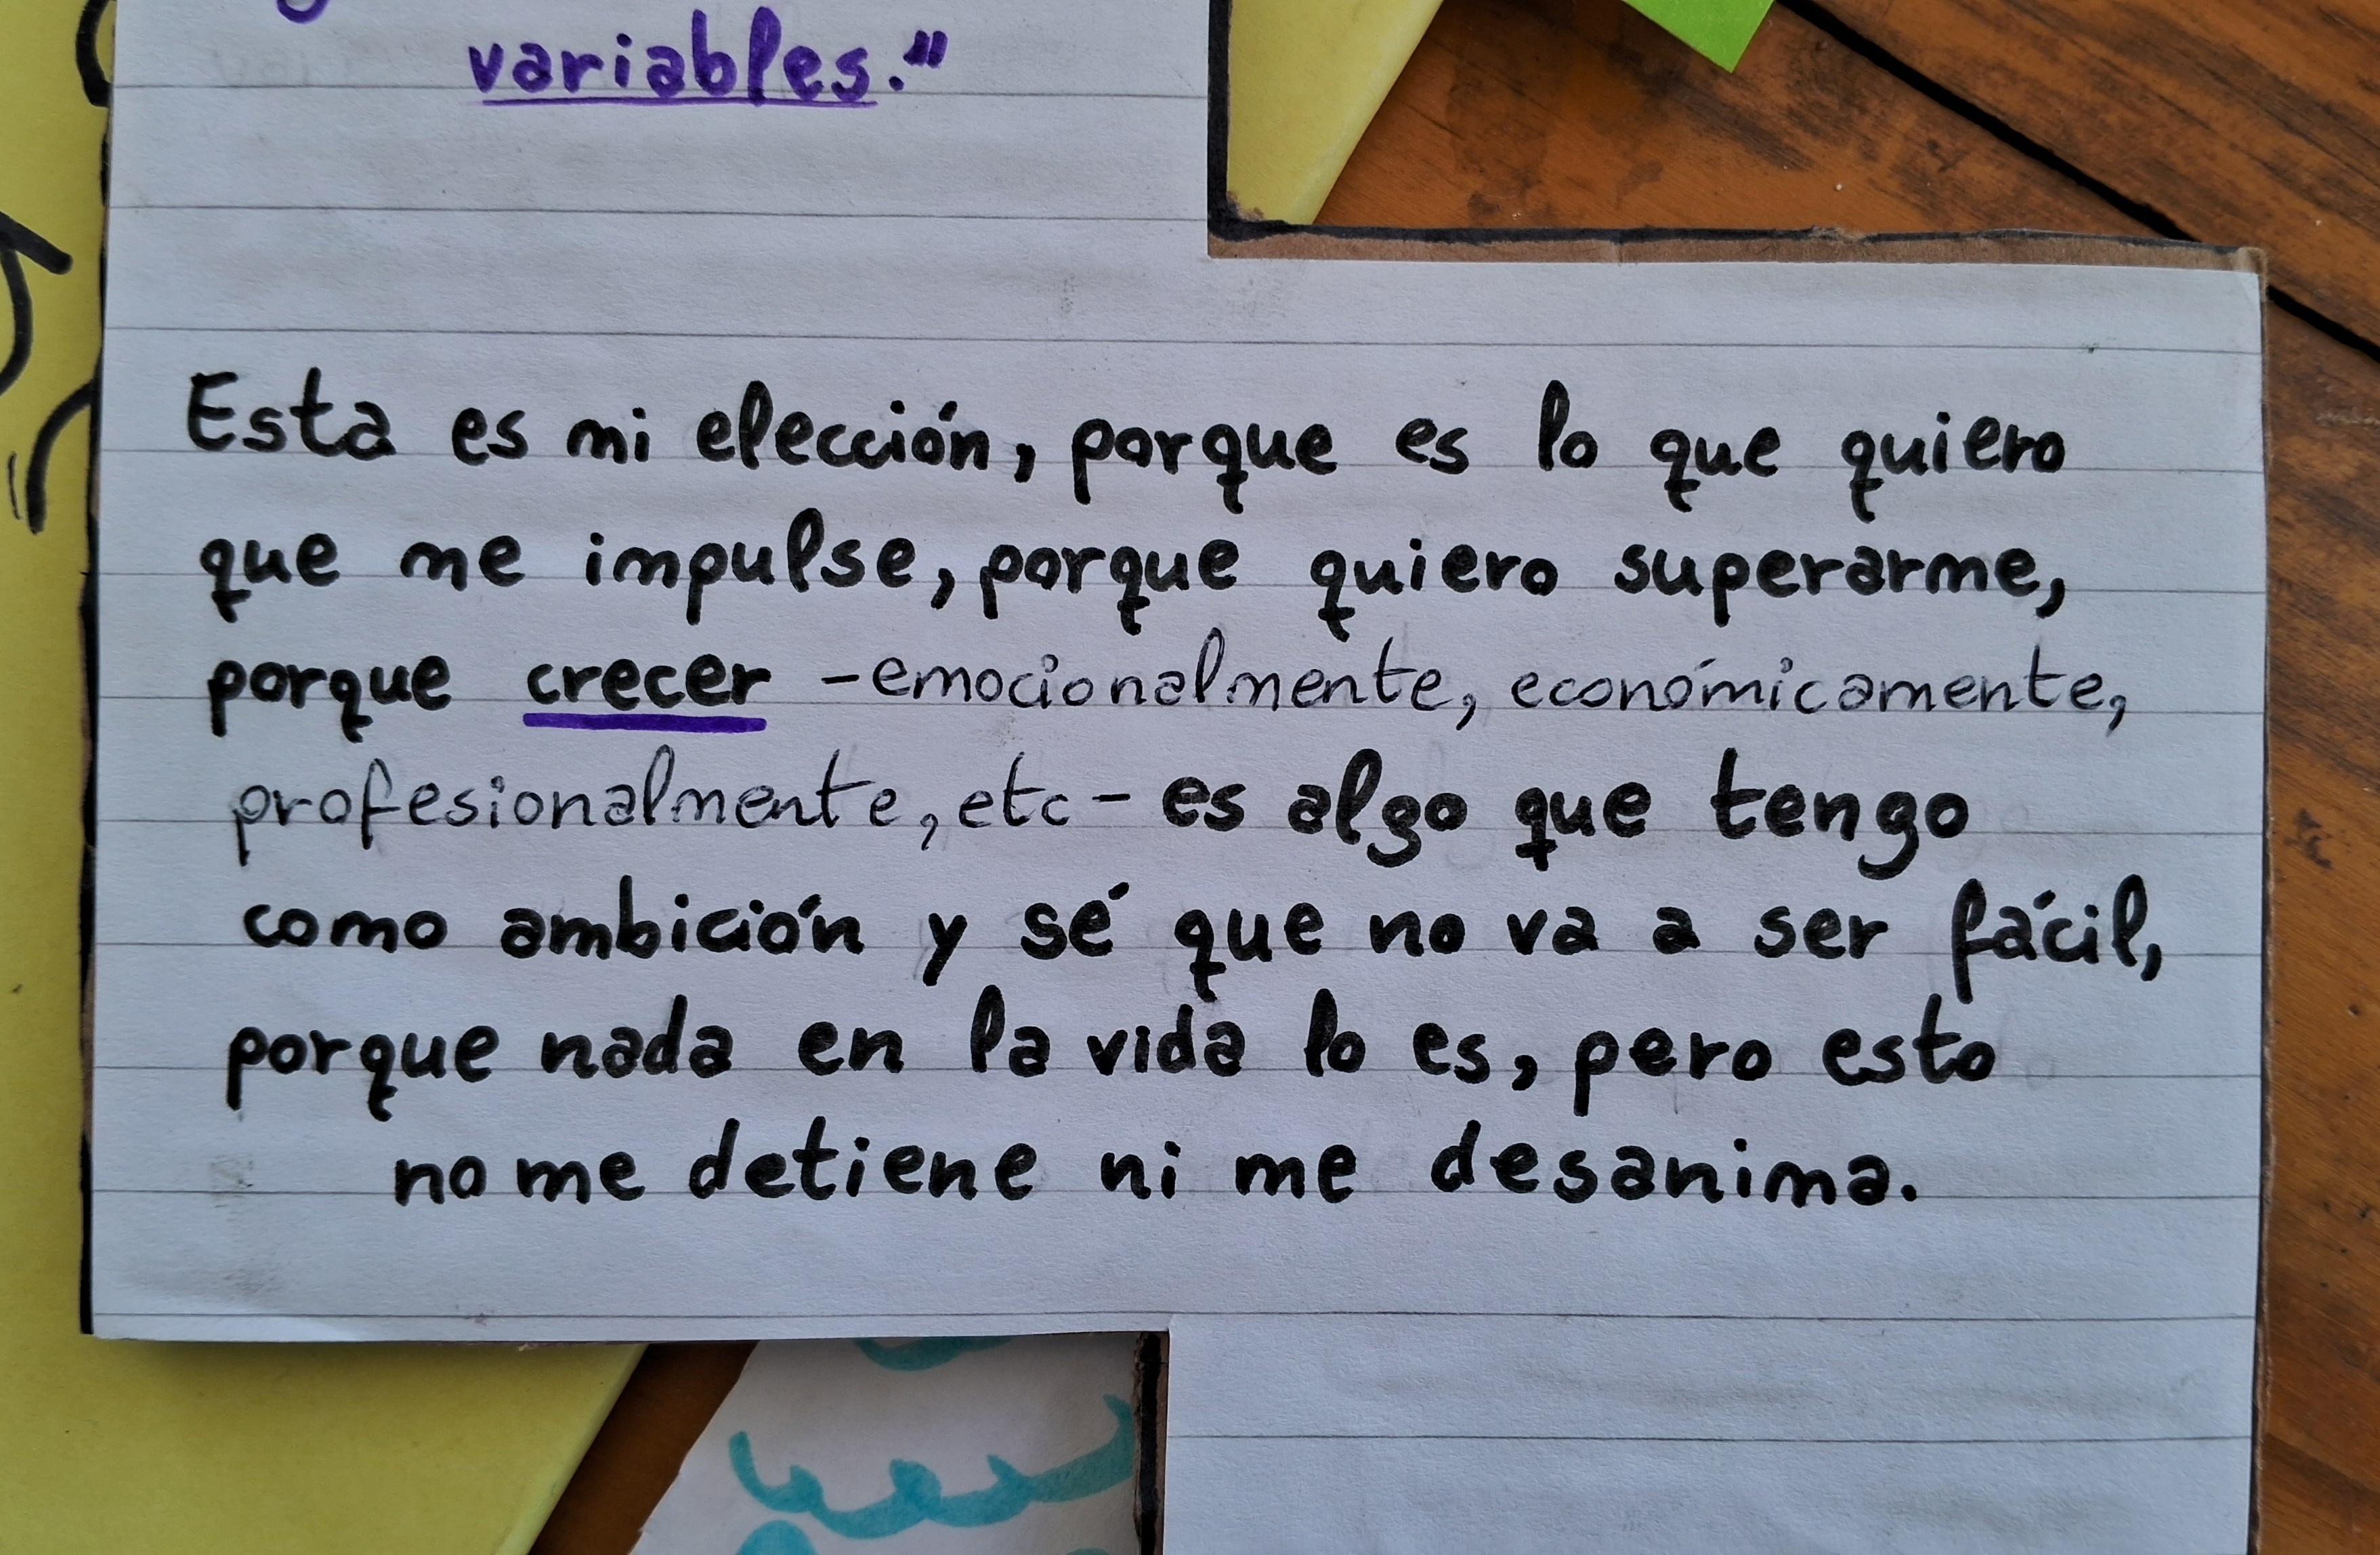 variables."
Esta es mi elección, porque es lo que quiero
que me impulse, porque quiero superarme,
porque crecer -emocionalmente, económicamente,
profesionalmente, etc- es algo que tengo
como ambición y sé que no va a ser fácil,
porque nada en la vida lo es, pero esto
no me detiene ni me desanima.